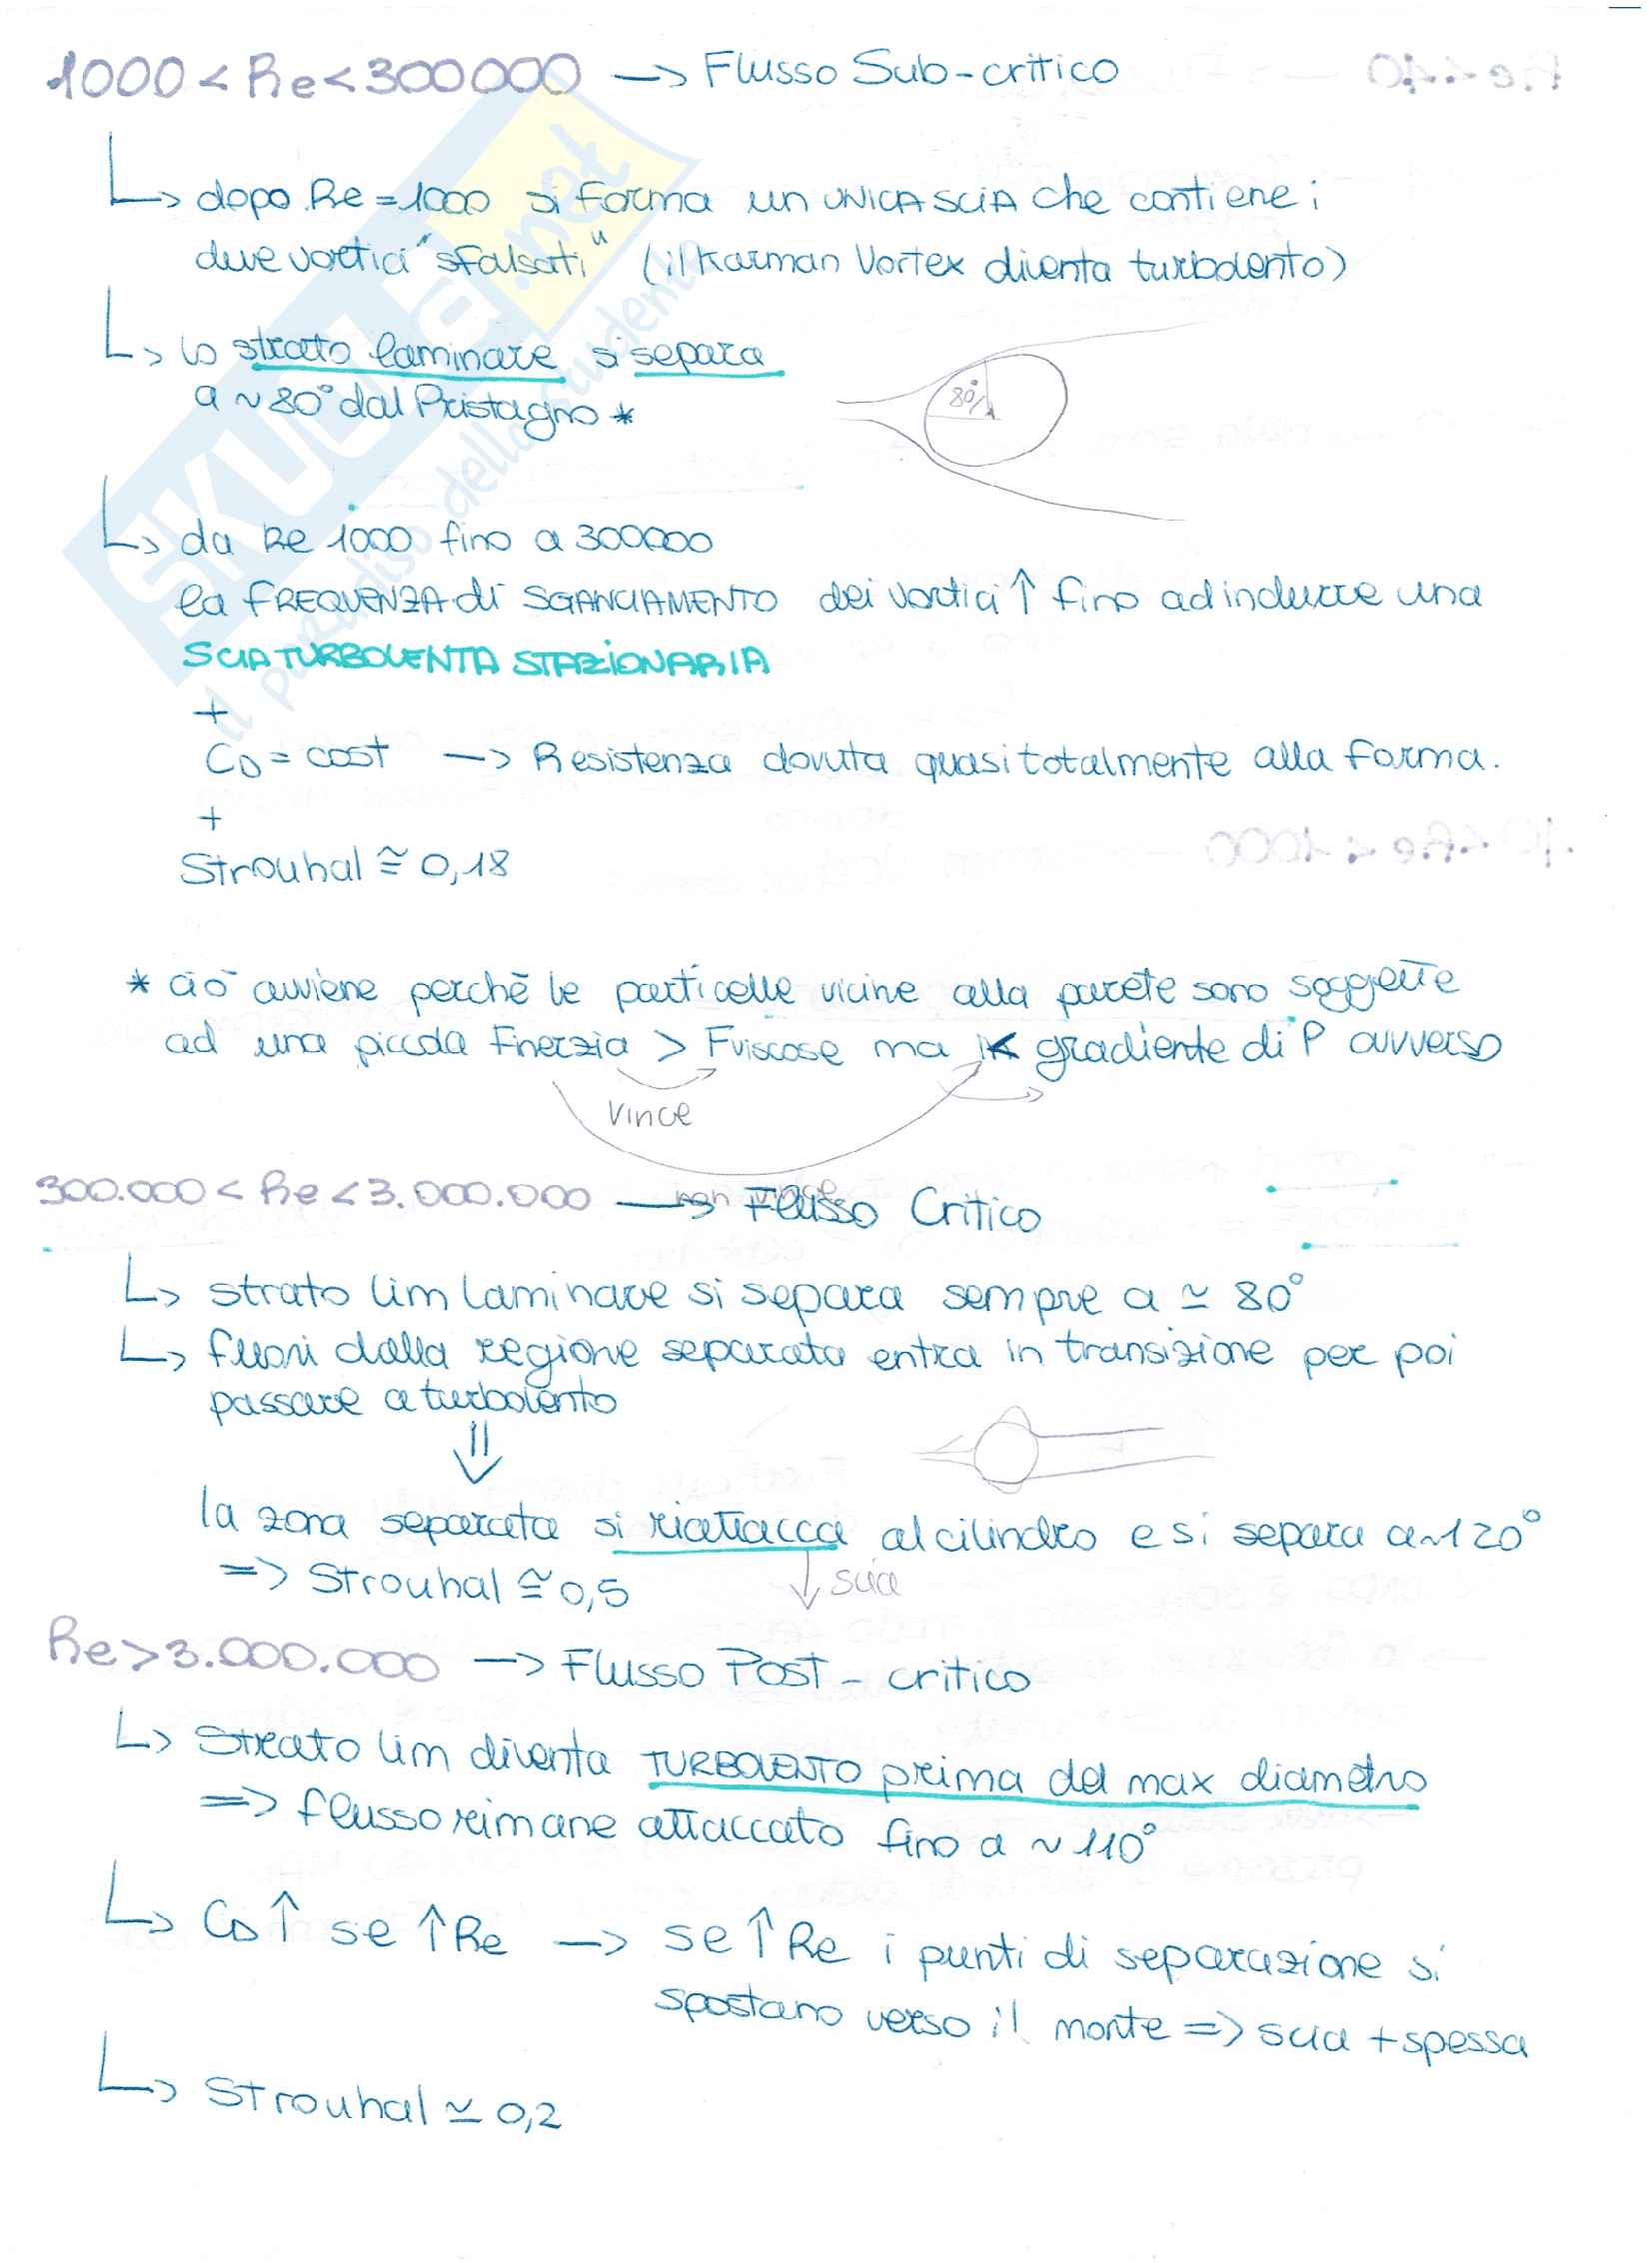 1000 < Re < 300000 —> Flusso Sub-critico
↳ dopo Re = 1000 si forma un UNICA SCIA che contiene i
due vortici "sfalsati" (il Karman Vortex diventa turbolento)
↳ lo strato laminare si separa
a ~ 80° dal Pristagno *
80°
↳ da Re 1000 fino a 300000
la FREQUENZA di SGANCIAMENTO dei vortici ↑ fino ad indurre una
SCIA TURBOLENTA STAZIONARIA
+
CD = cost —> Resistenza dovuta quasi totalmente alla forma.
+
Strouhal ≅ 0,18
* ciò avviene perchè le particelle vicine alla parete sono soggette
ad una piccola Finerzia > Fviscose ma < gradiente di P avverso
Vince
non vince
300.000 < Re < 3.000.000 —> Flusso Critico
↳ strato lim laminare si separa sempre a ≃ 80°
↳ fuori dalla regione separata entra in transizione per poi
passare a turbolento
⇓
la zona separata si riattacca al cilindro e si separa a ~120°
=> Strouhal ≅ 0,5 ↓ scia
Re > 3.000.000 —> Flusso Post-critico
↳ Strato lim diventa TURBOLENTO prima del max diametro
=> flusso rimane attaccato fino a ~ 110°
↳ CD ↑ se ↑ Re —> se ↑ Re i punti di separazione si
spostano verso il monte => scia + spessa
↳ Strouhal ≃ 0,2
SKUOLA.net
il paradiso dello studente